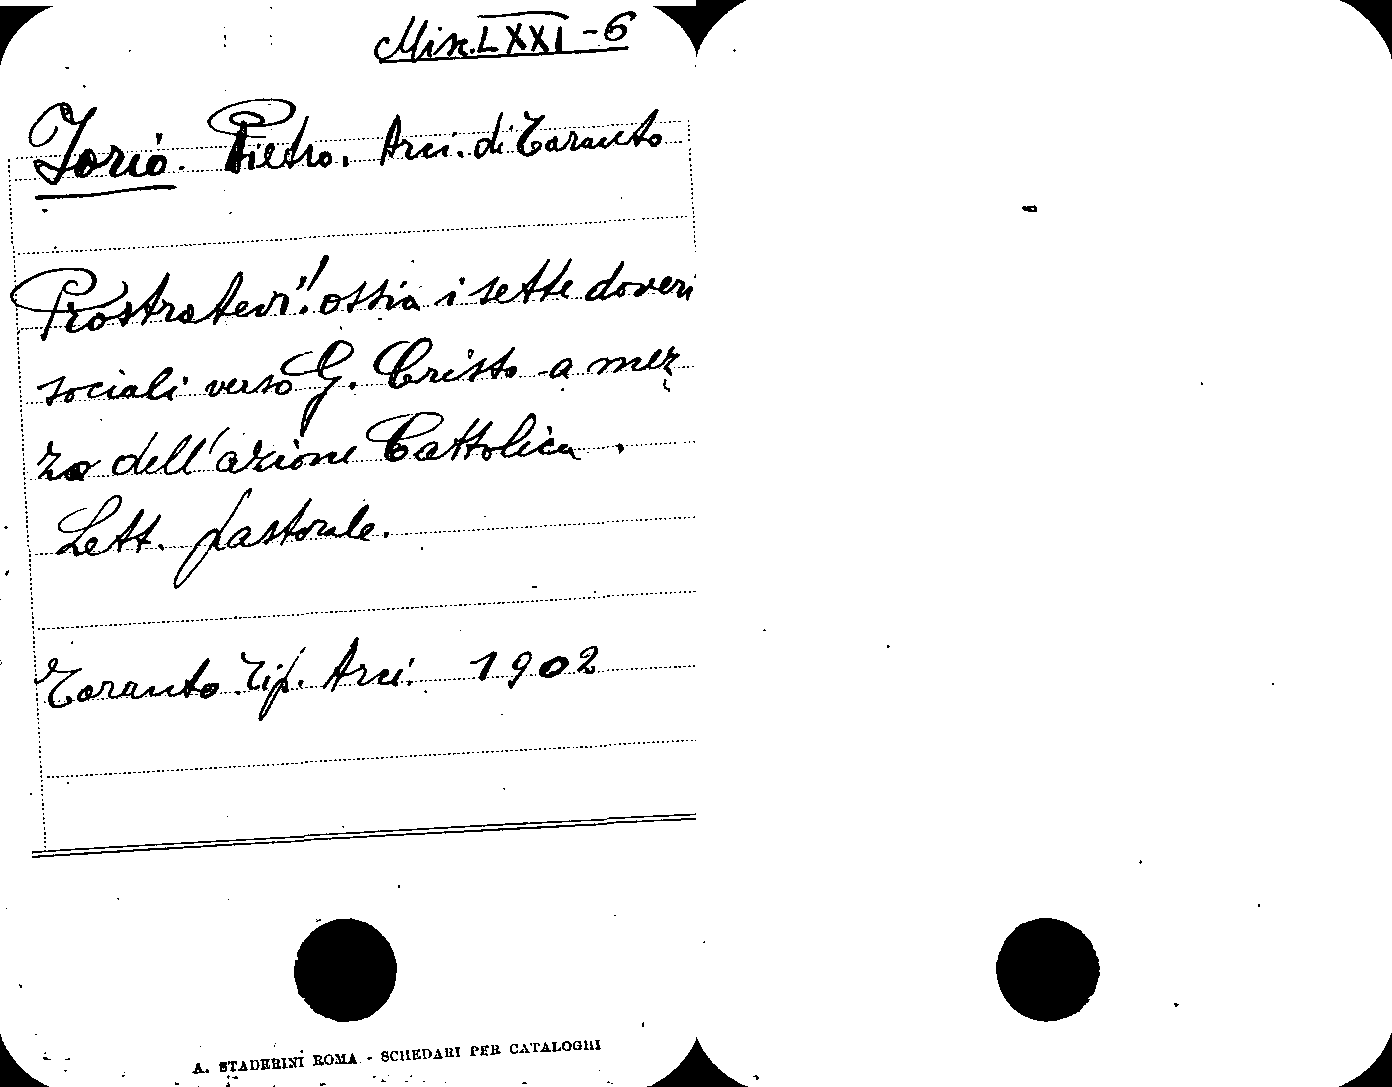 Misc. LXXI - 6
Jorio. Pietro. Arci. di Taranto
Prostratevi!! ossia i sette doveri
sociali verso G. Cristo a mez
zo dell'azione Cattolica.
Lett. pastorale.
Taranto. Tip. Arci. 1902
A. STADERINI ROMA - SCHEDARI PER CATALOGHI